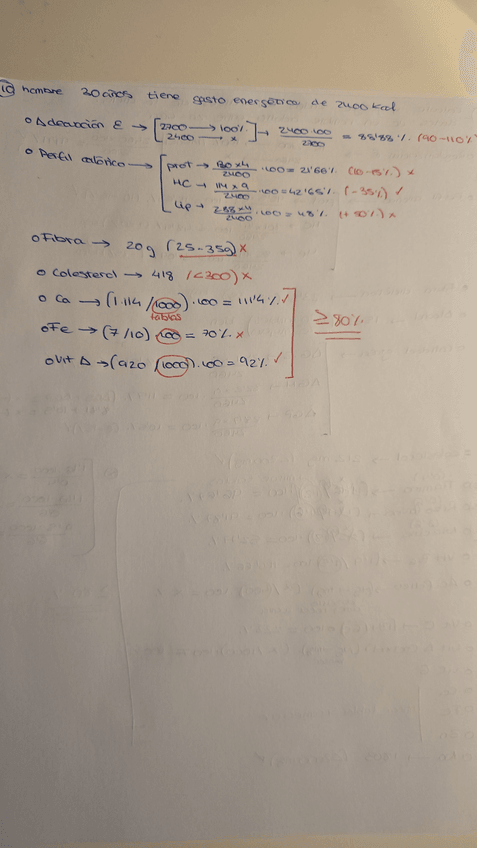 10 Hombre 30 años tiene gasto energético de 2400 kcal
o Adecuación E → [2700 → 100% 2400 → x] → 2400·100 / 2700 = 88'88% (90-110%)
o Perfil calórico → [prot → 130 x 4 / 2400 · 100 = 21'66% (10-15%) x
HC → 114 x 9 / 2400 · 100 = 42'65% (-35%) ✓
Lip → 288 x 4 / 2400 · 100 = 48% (+50%) x
o Fibra → 20g (25-35g) x
o Colesterol → 418 (<300) x
o Ca → (1.114 / 1000) · 100 = 111'4% ✓
tablas
o Fe → (7/10) · 100 = 70% x
≥ 80%
o Vit A → (920 / 1000) · 100 = 92% ✓